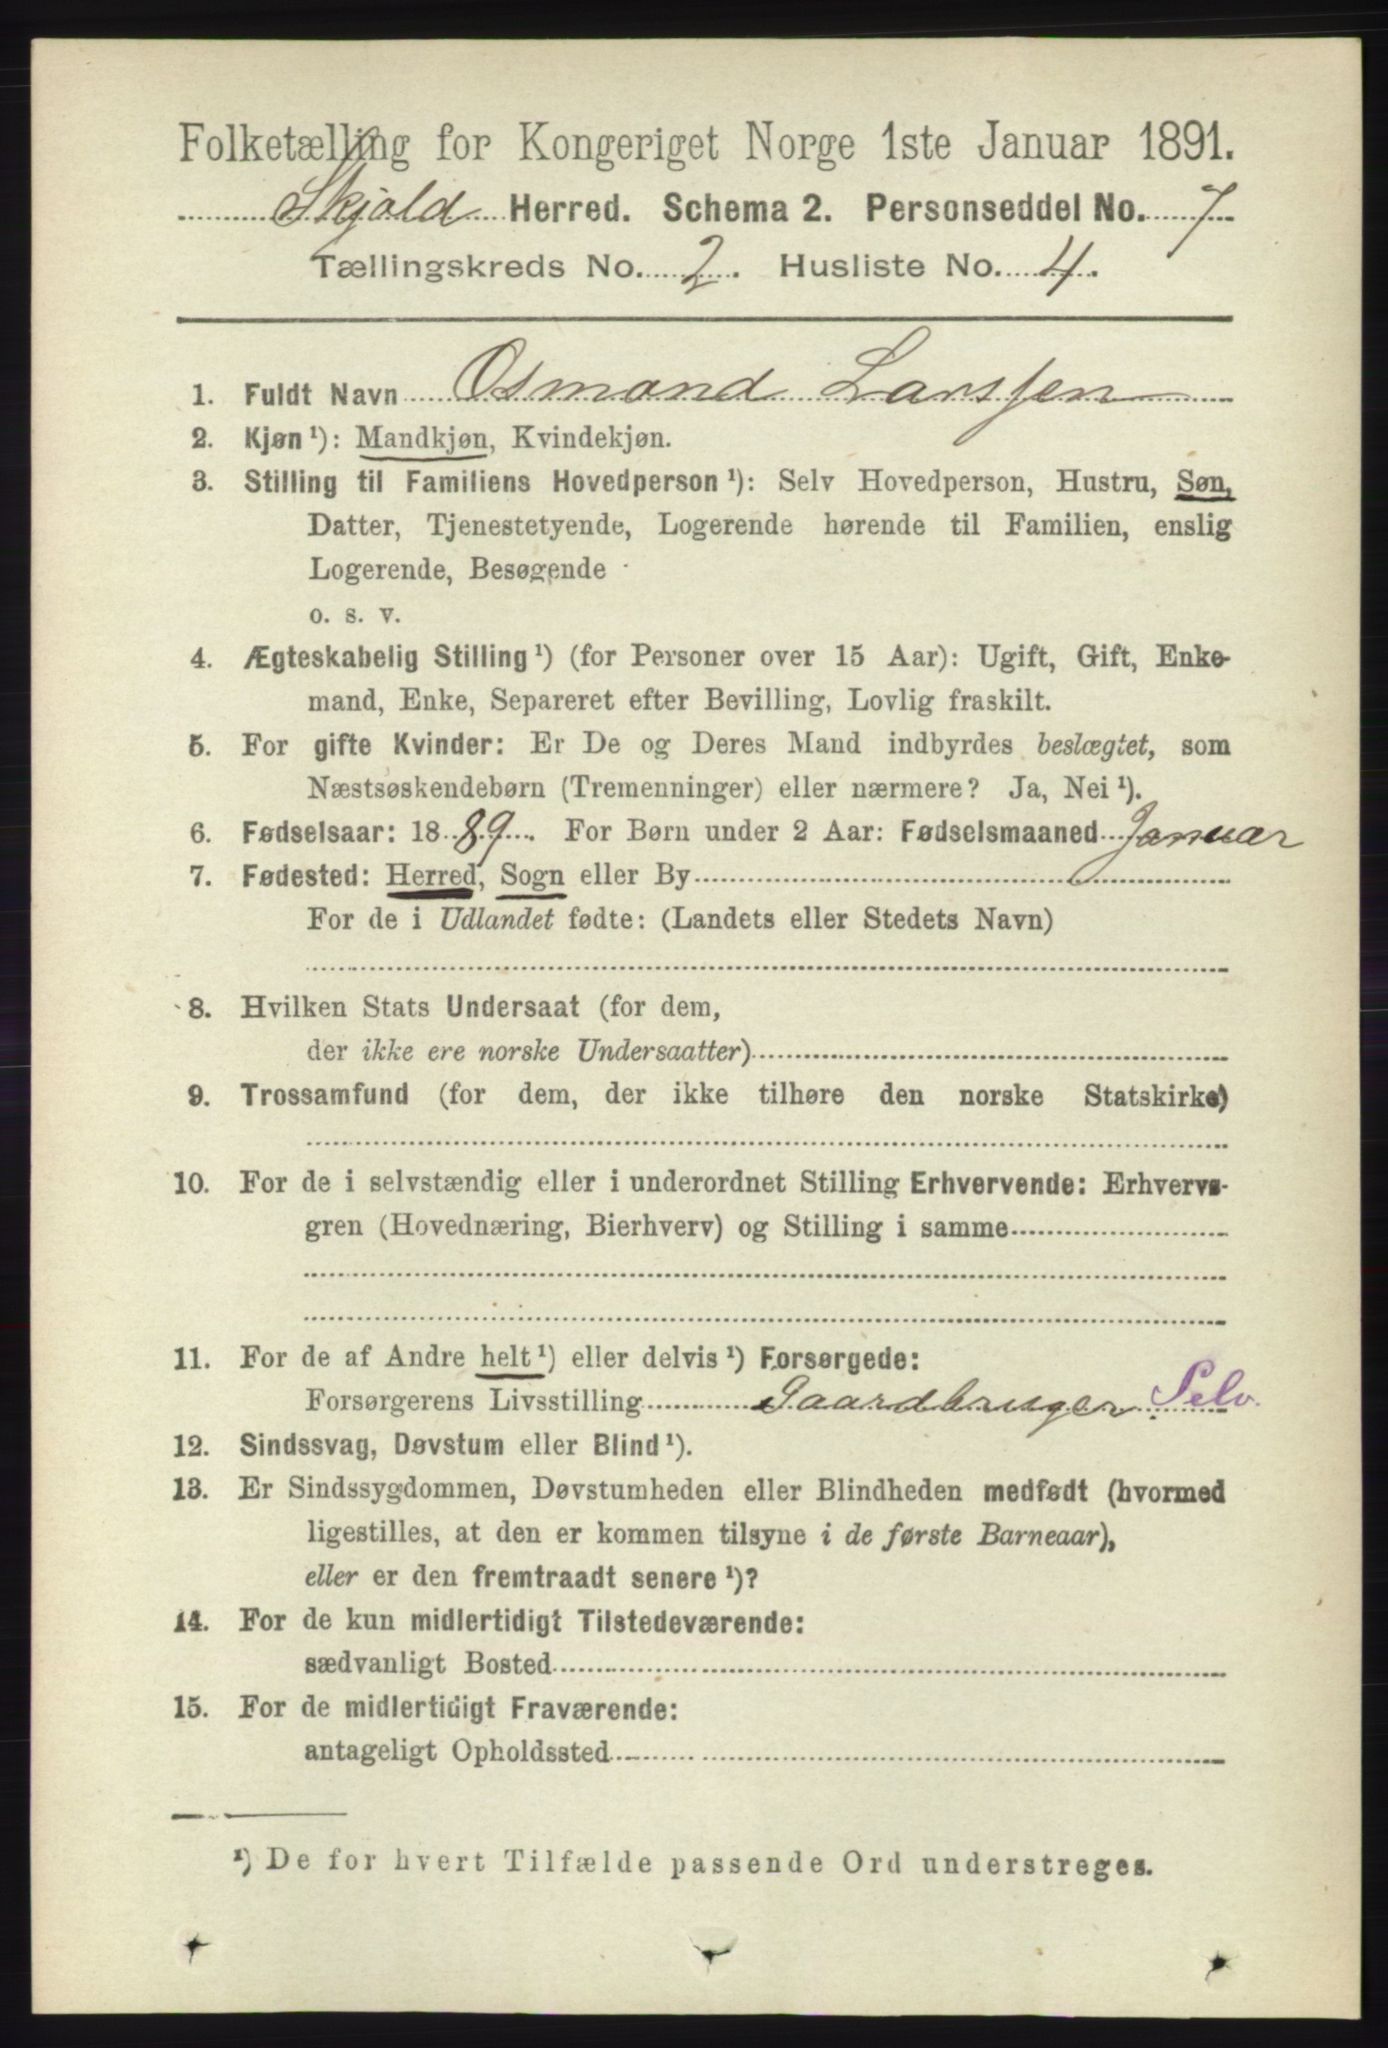 Folketælling for Kongeriget Norge 1ste Januar 1891.
Skjold Herred. Schema 2. Personseddel No. 7
Tællingskreds No. 2. Husliste No. 4.
1. Fuldt Navn Osmand Larssen
2. Kjøn¹): Mandkjøn, Kvindekjøn.
3. Stilling til Familiens Hovedperson¹): Selv Hovedperson, Hustru, Søn,
Datter, Tjenestetyende, Logerende hørende til Familien, enslig
Logerende, Besøgende
o. s. v.
4. Ægteskabelig Stilling¹) (for Personer over 15 Aar): Ugift, Gift, Enke-
mand, Enke, Separeret efter Bevilling, Lovlig fraskilt.
5. For gifte Kvinder: Er De og Deres Mand indbyrdes beslægtet, som
Næstsøskendebørn (Tremenninger) eller nærmere? Ja, Nei¹).
6. Fødselsaar: 1889. For Børn under 2 Aar: Fødselsmaaned Januar
7. Fødested: Herred, Sogn eller By
For de i Udlandet fødte: (Landets eller Stedets Navn)
8. Hvilken Stats Undersaat (for dem,
der ikke ere norske Undersaatter)
9. Trossamfund (for dem, der ikke tilhøre den norske Statskirke)
10. For de i selvstændig eller i underordnet Stilling Erhvervende: Erhvervs-
gren (Hovednæring, Bierhverv) og Stilling i samme
11. For de af Andre helt¹) eller delvis¹) Forsørgede:
Forsørgerens Livsstilling Gaardbruger Selv.
12. Sindssvag, Døvstum eller Blind¹).
13. Er Sindssygdommen, Døvstumheden eller Blindheden medfødt (hvormed
ligestilles, at den er kommen tilsyne i de første Barneaar),
eller er den fremtraadt senere¹)?
14. For de kun midlertidigt Tilstedeværende:
sædvanligt Bosted
15. For de midlertidigt Fraværende:
antageligt Opholdssted
¹) De for hvert Tilfælde passende Ord understreges.